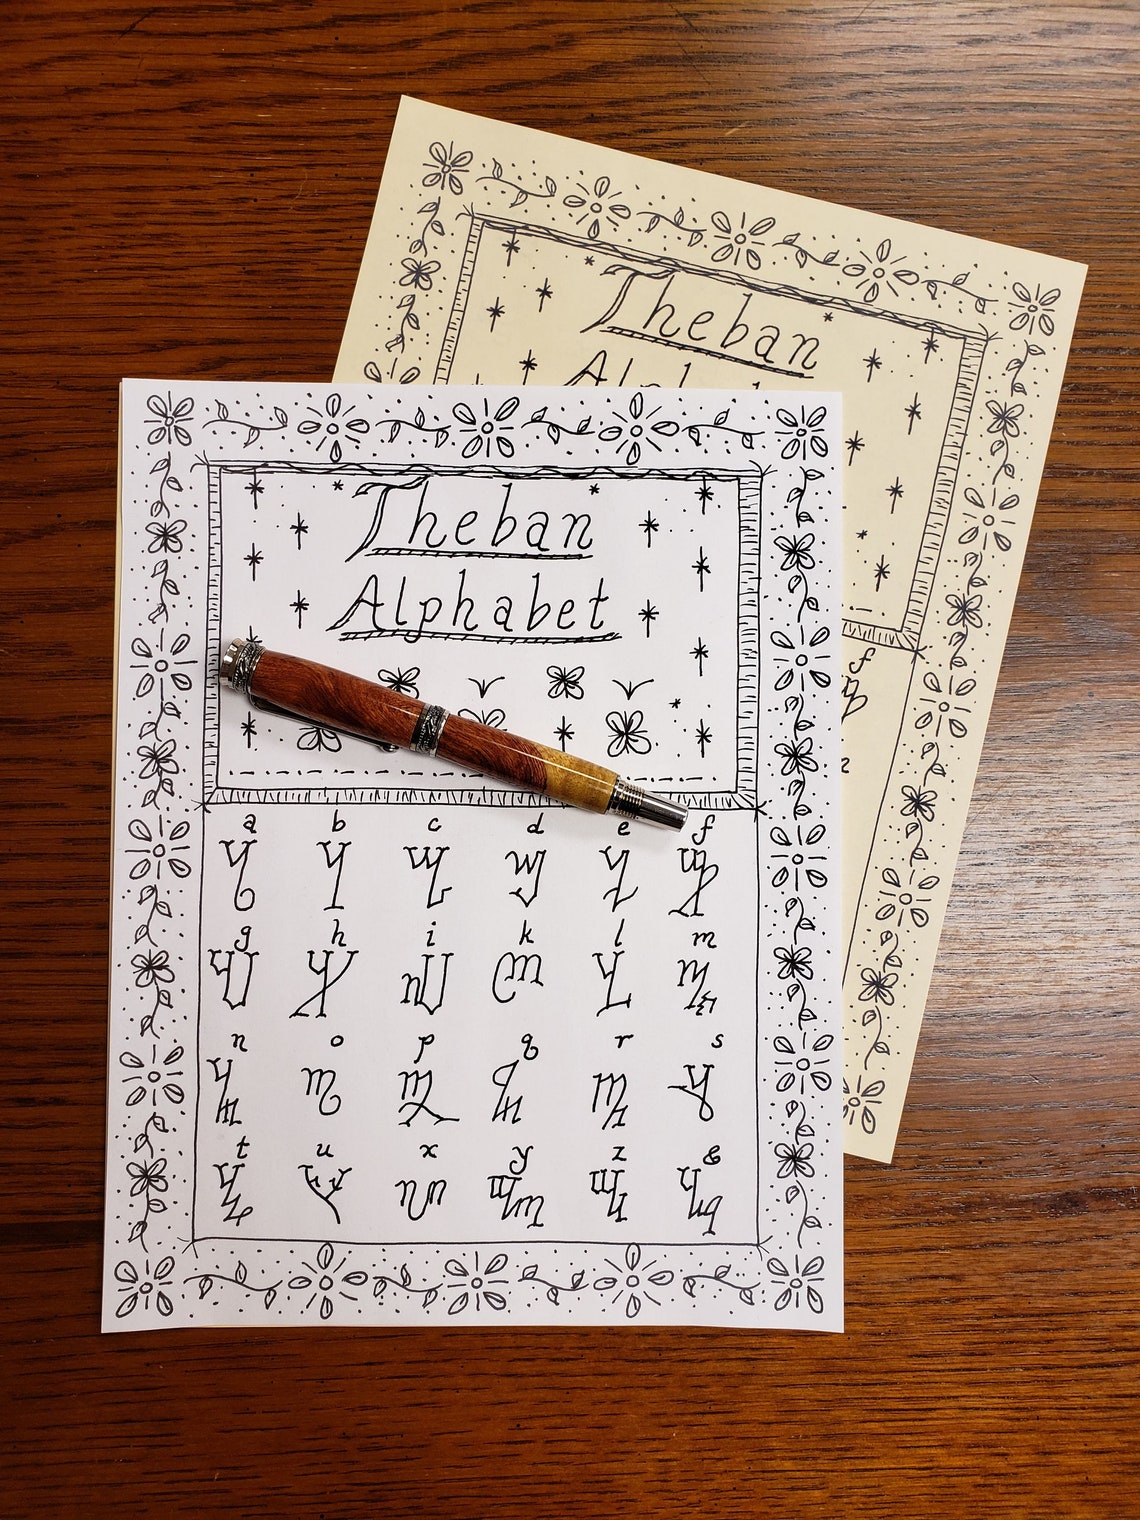 Theban
Theban
Alphabet
f
z
a b c d e f
g h i k l m
n o p q r s
t u x y z &